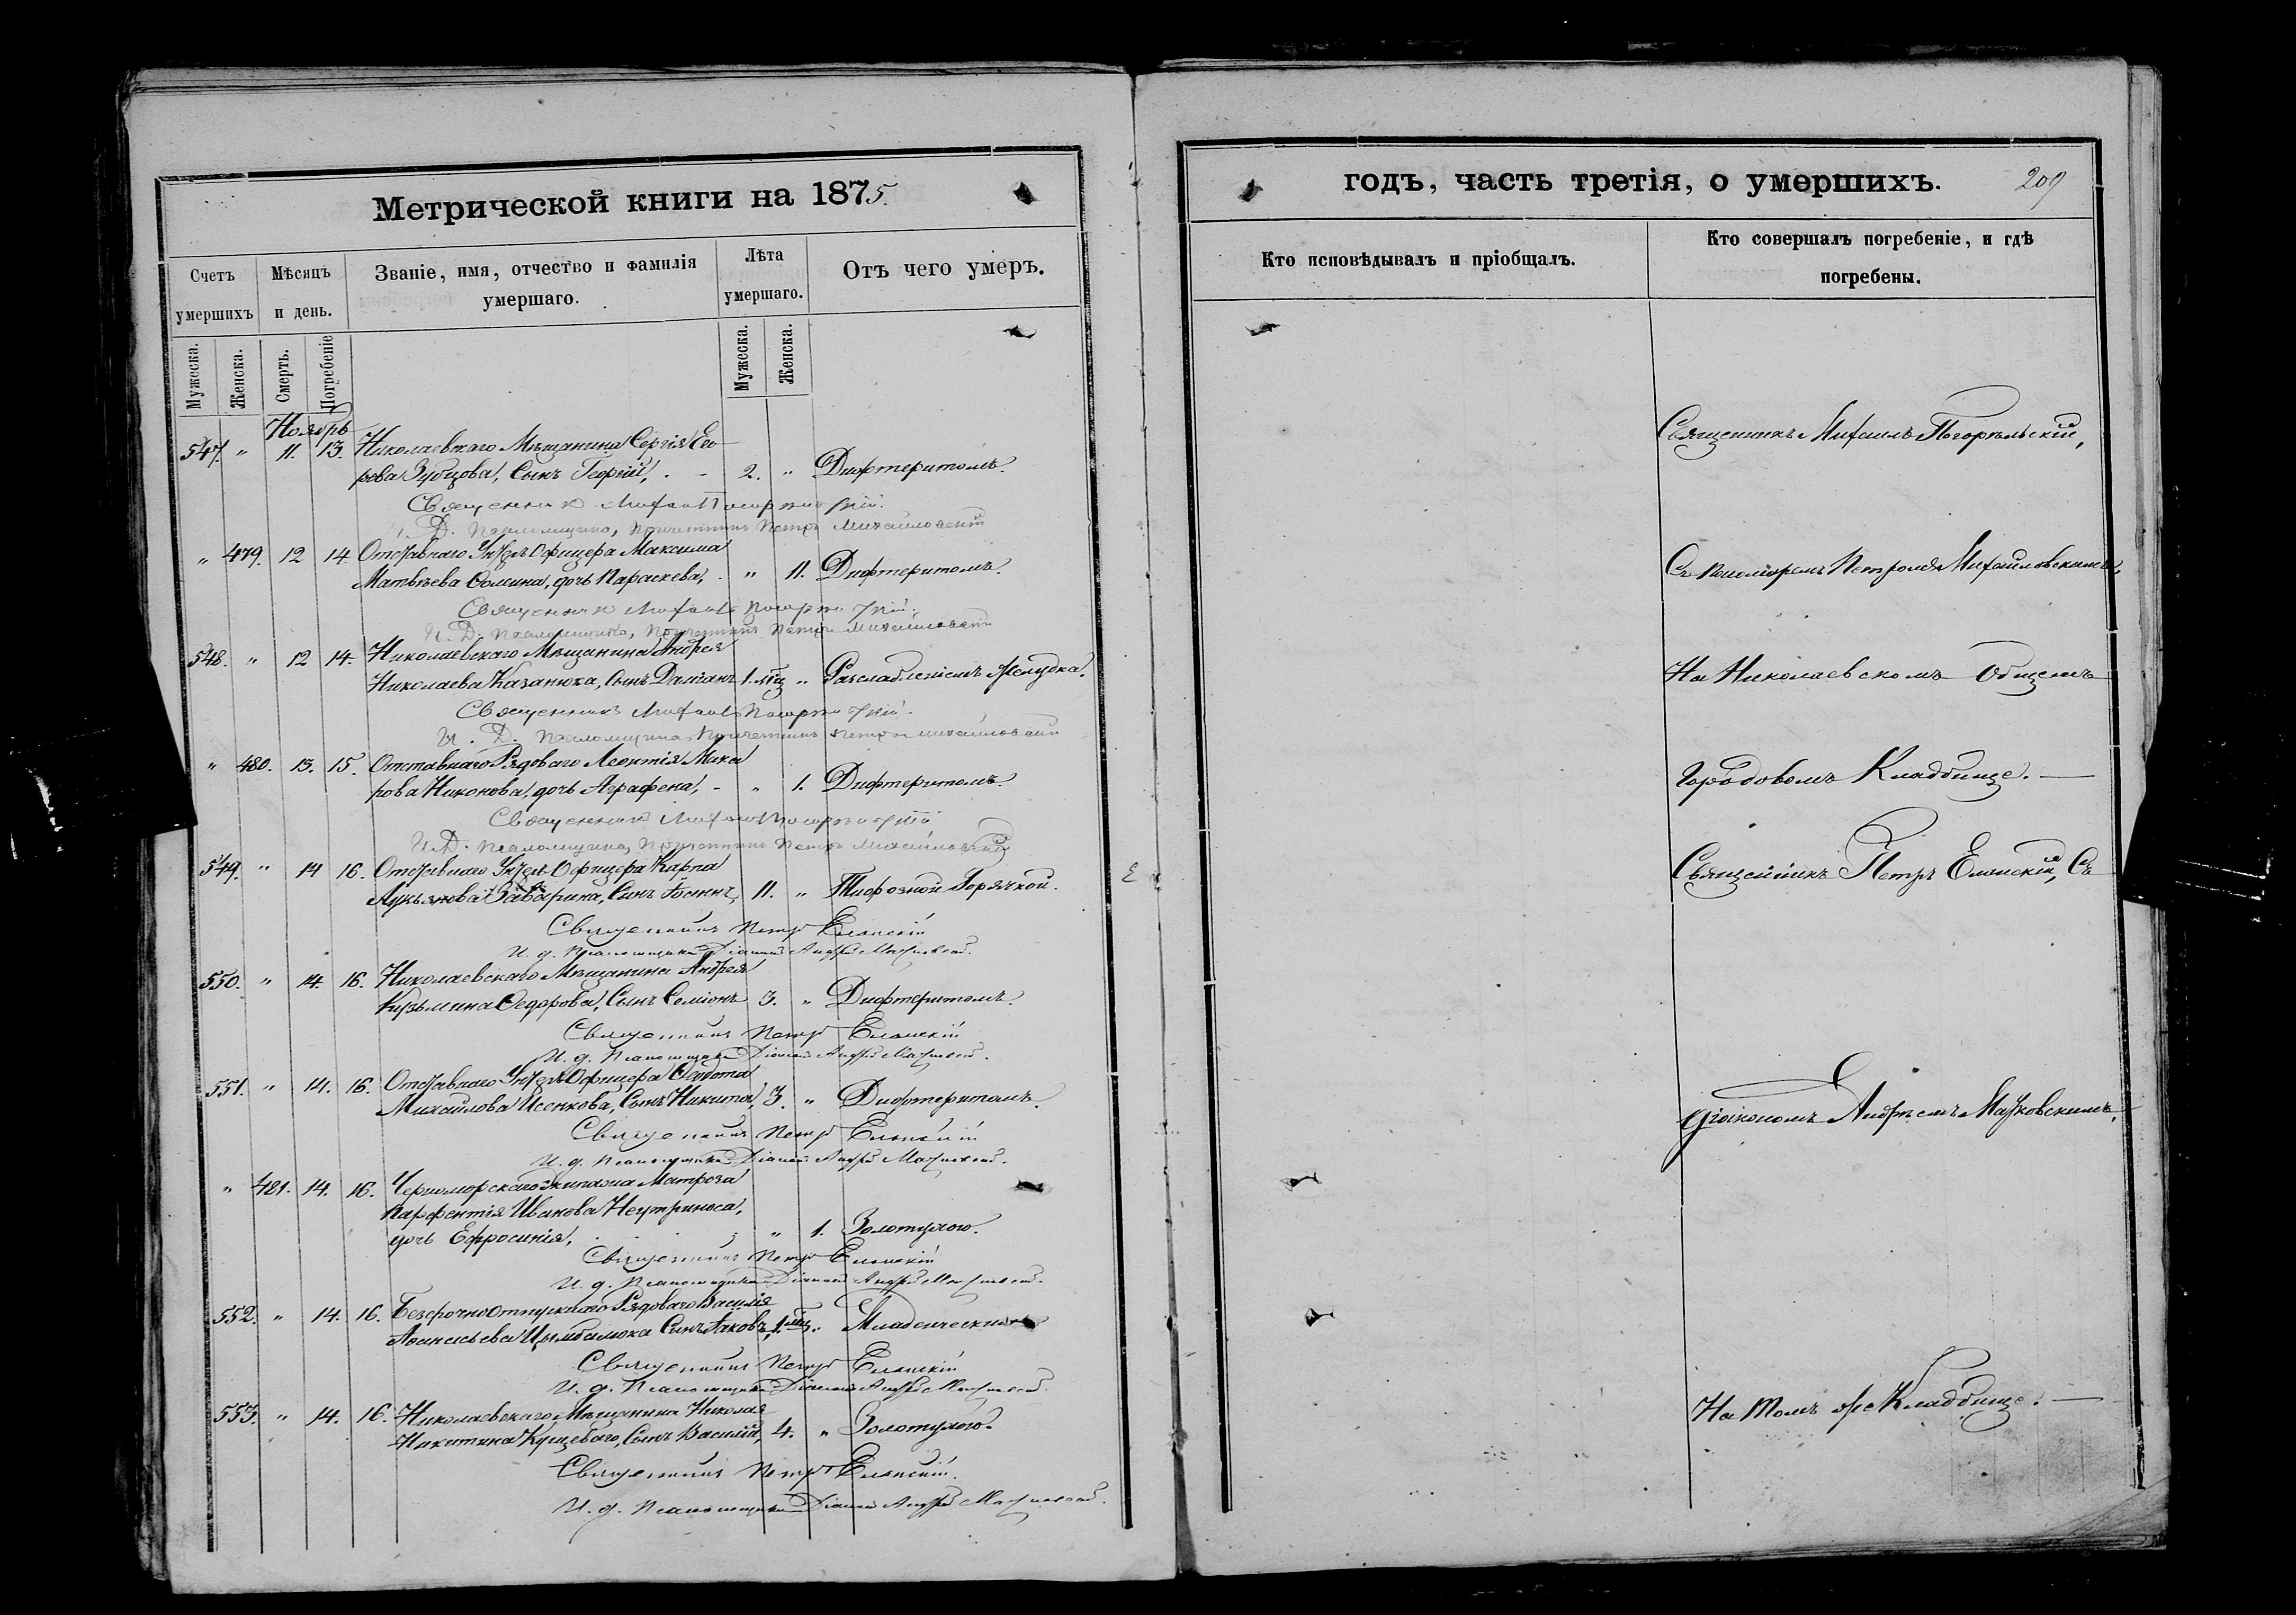 Метрической книги на 1875.
Счетъ умершихъ
Мѣсяцъ и день.
Званіе, имя, отчество и фамилія умершаго.
Лѣта умершаго.
Отъ чего умеръ.
Мужеска.
Женска.
Смерть.
Погребеніе
Мужеска.
Женска.
Ноябрь
547. " 11. 13. Николаевскаго Мѣщанина Сергія Его
рова Зубцова, Сынъ Георгій, 2. " Дифтеритомъ.
Священникъ Михаилъ Погорѣльскій.
И. Д. Псаломщика, Причетникъ Петръ Михайловскій
" 479. 12 14 Отставнаго Унтеръ Офицера Максима
Матвѣева Фомина, дочь Параскева, " 11. Дифтеритомъ.
Священникъ Михаилъ Погорѣльскій.
И. Д. Псаломщика, Причетникъ Петръ Михайловскій
548. " 12 14. Николаевскаго Мѣщанина Андрея
Николаева Казанюка, Сынъ Даміанъ 1. мц " Разслабленіемъ Желудка.
Священникъ Михаилъ Погорѣльскій.
И. Д. Псаломщика, Причетникъ Петръ Михайловскій
" 480. 13. 15. Отставнаго Рядоваго Леонтія Мака
рова Никонова, дочь Аграфена, " 1. Дифтеритомъ.
Священникъ Михаилъ Погорѣльскій
И. Д. Псаломщика, Причетникъ Петръ Михайловскій
549. " 14 16. Отставнаго Унтеръ Офицера Карпа
Лукьянова Заварина, Сынъ 11. " Тифозной Горячкой.
Священникъ Петръ Еланскій
И. д. Псаломщика Діаконъ Андрей
550. " 14. 16. Николаевскаго Мѣщанина Андрея
Кузьмина Федорова, Сынъ Семіонъ 3. " Дифтеритомъ.
Священникъ Петръ Еланскій
И. д. Псаломщика Діаконъ Андрей
551. " 14. 16. Отставнаго Унтеръ Офицера Федота
Михайлова Исенкова, Сынъ Никита, 3. " Дифтеритомъ.
Священникъ Петръ Еланскій
И. д. Псаломщика Діаконъ Андрей
" 481. 14. 16. Черноморскаго Экипажа Матроза
Парфентія Иванова
дочь Ефросинія, " 1. Золотухою.
Священникъ Петръ Еланскій
И. д. Псаломщика Діаконъ Андрей
552. " 14. 16. Безсрочноотпускнаго Рядоваго Василія
Афанасьева Цымбалюка Сынъ Іаковъ, 1. мц " Младенческимъ
Священникъ Петръ Еланскій
И. д. Псаломщика Діаконъ Андрей
553. " 14. 16. Николаевскаго Мѣщанина Николая
Никитина Сынъ Василій, 4. " Золотухою.
Священникъ Петръ Еланскій.
И. д. Псаломщика Діаконъ Андрей
годъ, часть третія, о умершихъ. 209
Кто исповѣдывалъ и пріобщалъ.
Кто совершалъ погребеніе, и гдѣ погребены.
Священникъ Михаилъ Погорѣльскій,
Съ Пономаремъ Петромъ Михайловскимъ,
На Николаевскомъ Общемъ
Городовомъ Кладбище.
Священникъ Петръ Еланскій, Съ
Діакономъ Андреемъ
На томъ же Кладбище.